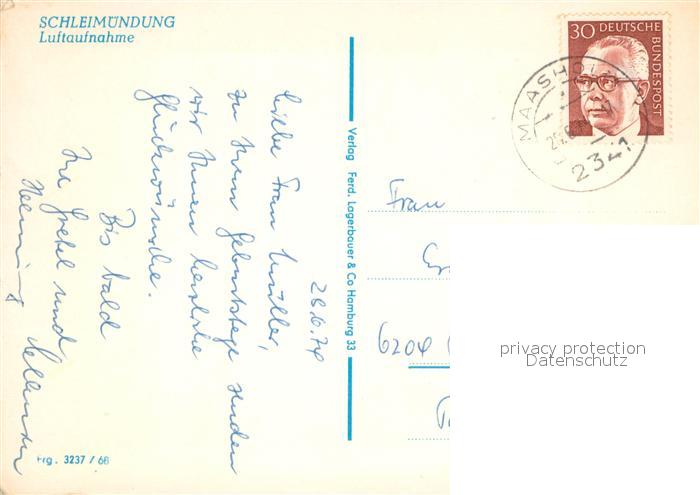 SCHLEIMÜNDUNG
Luftaufnahme
28.6.74
Liebe Frau Müller,
zu Ihrem Geburtstage senden
wir Ihnen herzliche
Glückwünsche.
Bis bald
Ihre Gretel und
Henning
Frg. 3237 / 68
Verlag Ferd. Lagerbauer & Co Hamburg 33
30 DEUTSCHE
BUNDESPOST
MAASHOLM
2341
Frau
6204
privacy protection
Datenschutz